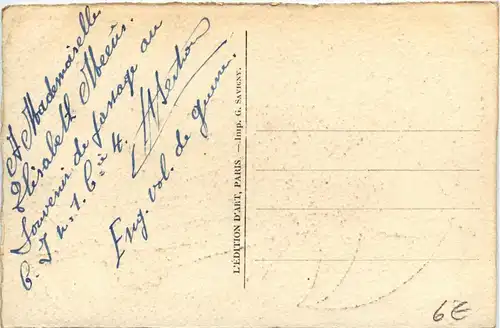 A Mademoiselle
Elisabeth Meeùs.
Souvenir de passage au
C. I. n=1. C=ie 4.
Eng. vol. de guerre.
L'ÉDITION D'ART, PARIS. — Imp. G. SAVIGNY.
6€